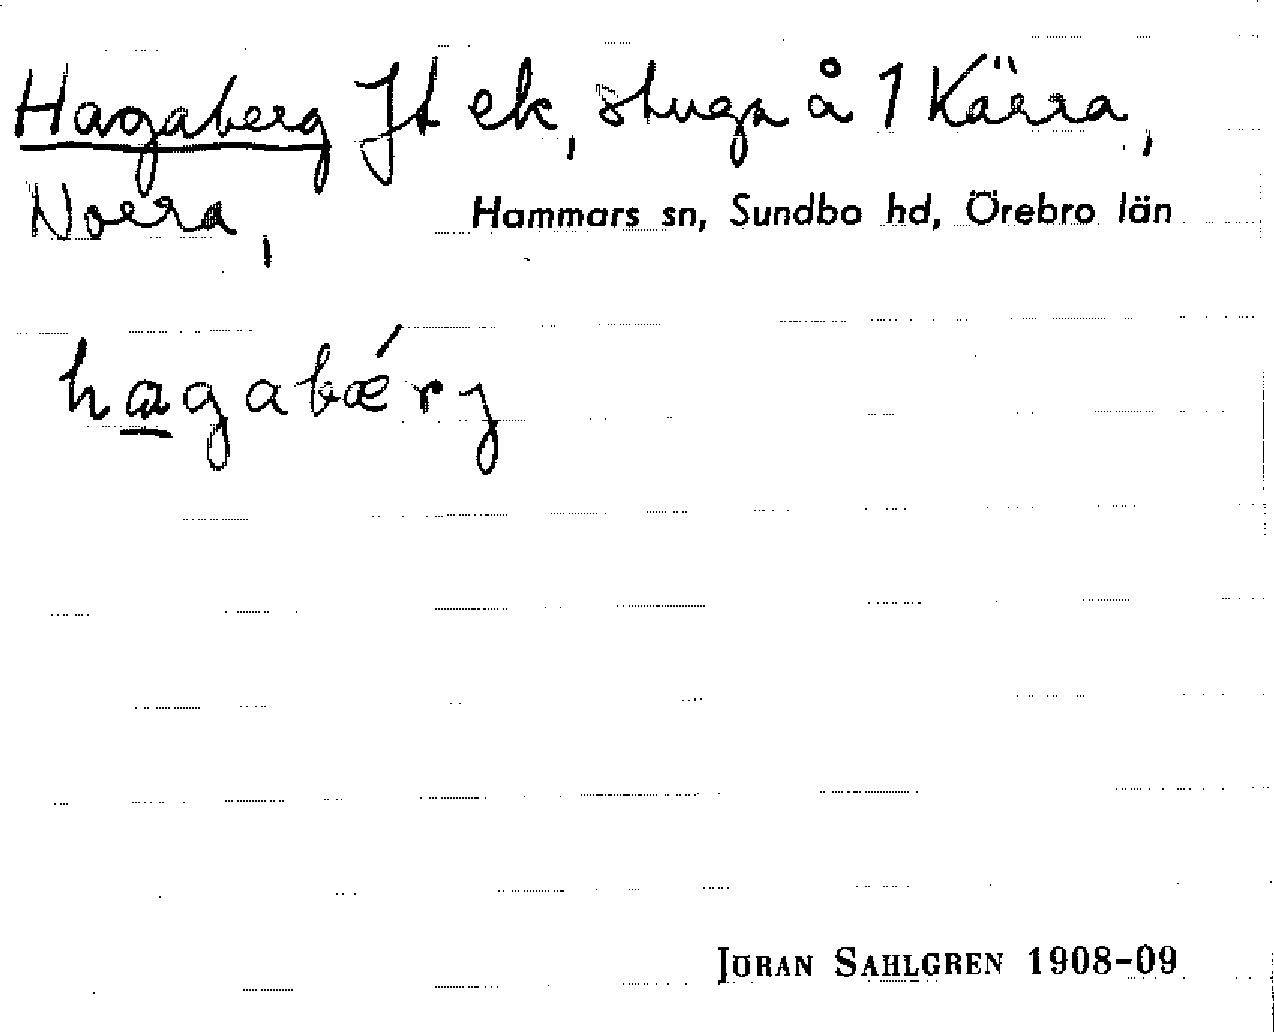 Hagaberg Jt ek, stuga å 1 Kärra,
Norra, Hammars sn, Sundbo hd, Örebro län
hagabǽrj
JÖRAN SAHLGREN 1908-09